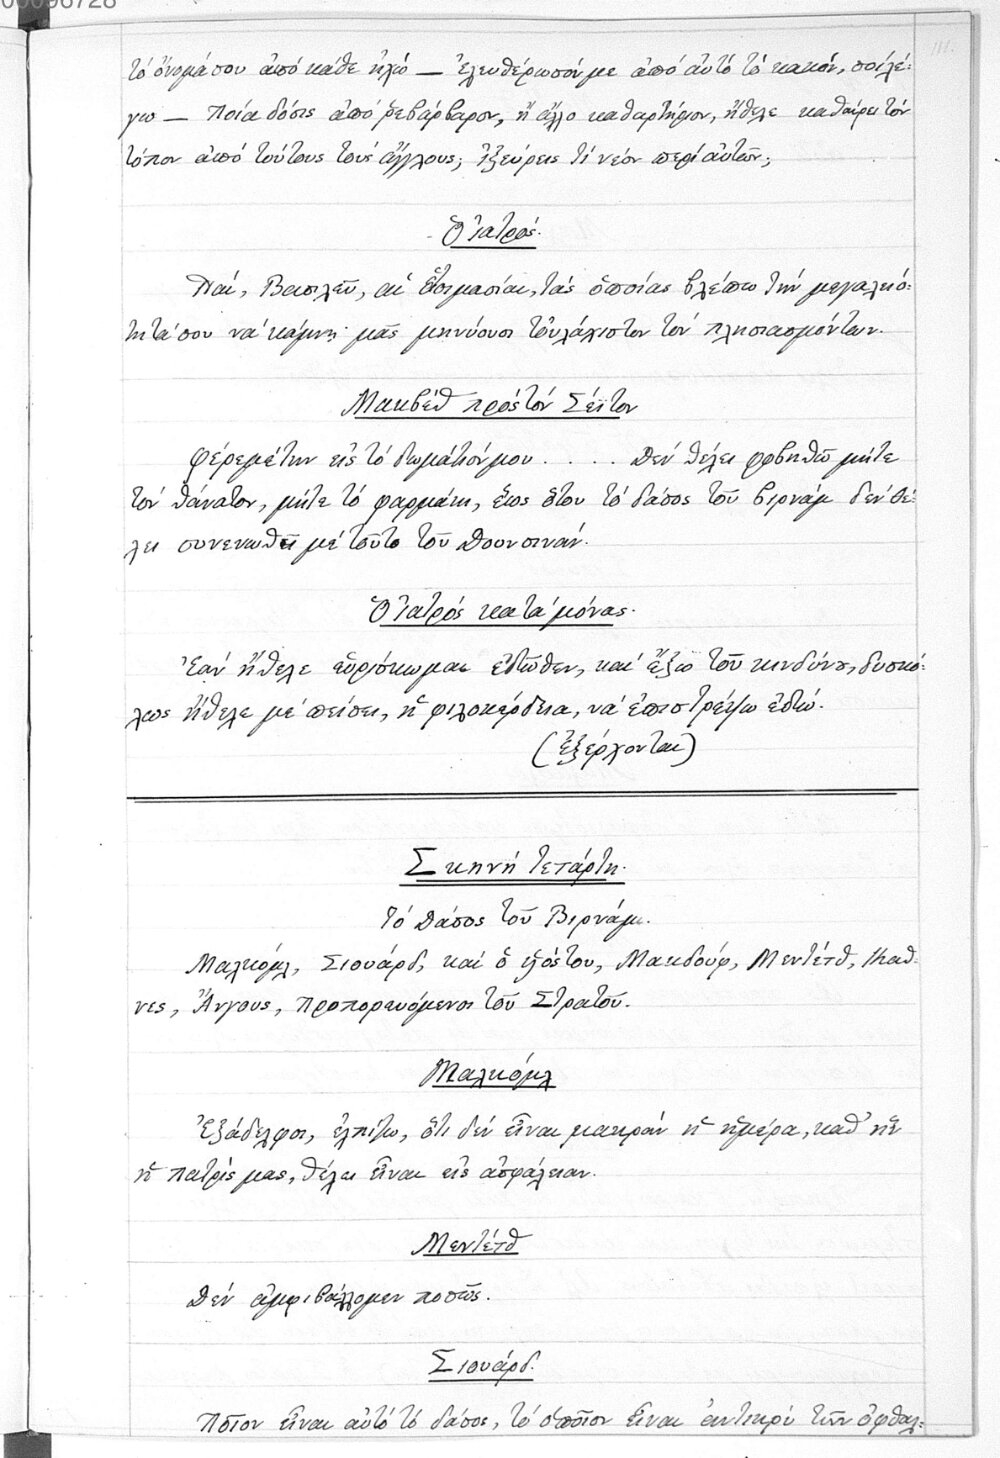 00096728
111.
τὸ ὄνομά σου ἀπὸ κάθε ἠχὼ — ἐλευθέρωσόν με ἀπὸ αὐτὸ τὸ κακόν, σοὶ λέ-
γω — ποία δόσις ἀπὸ ῥεβάρβαρον, ἢ ἄλλο καθαρτήριον, ἤθελε καθαίρει τὸν
τόπον ἀπὸ τούτους τοὺς ἄγγλους; ἠξεύρεις τί νέον περὶ αὐτῶν;
Ὁ ἰατρός.
Ναί, Βασιλεῦ, αἱ ἑτοιμασίαι, τὰς ὁποίας βλέπω τὴν μεγαλειό-
τητά σου νὰ κάμνῃ μᾶς μηνύουσι τοὐλάχιστον τὸν πλησιασμόν των.
Μακβὲθ πρὸς τὸν Σέϊτον
Φέρε μέ την εἰς τὸ δωμάτιόν μου . . . . . Δὲν θέλει φοβηθῶ μήτε
τὸν θάνατον, μήτε τὸ φαρμάκι, ἕως ὅτου τὸ δάσος τοῦ Βιρνὰμ δὲν θέ-
λει συνενωθεῖ μὲ τοῦτο τοῦ Δουνσινάν.
Ὁ ἰατρὸς κατὰ μόνας.
Ἐὰν ἤθελε εὑρίσκωμαι ἐδῶθεν, καὶ ἔξω τοῦ κινδύνου, δυσκό-
λως ἤθελε μὲ πείσει, ἡ φιλοκέρδεια, νὰ ἐπιστρέψω ἐδῶ.
(Ἐξέρχονται)
Σκηνὴ τετάρτη.
Τὸ Δάσος τοῦ Βιρνάμ.
Μαλκόμλ, Σιουάρδ, καὶ ὁ υἱός του, Μακδούφ, Μεντέτθ, Καθ-
νες, Ἄνγους, προπορευόμενοι τοῦ Στρατοῦ.
Μαλκόμλ
Ἐξάδελφοι, ἐλπίζω, ὅτι δὲν εἶναι μακρὰν ἡ ἡμέρα, καθ' ἣν
ἡ πατρίς μας, θέλει εἶναι εἰς ἀσφάλειαν.
Μεντέτθ
Δὲν ἀμφιβάλλομεν ποσῶς.
Σιουάρδ.
Ποῖον εἶναι αὐτὸ τὸ δάσος, τὸ ὁποῖον εἶναι ἀντικρὺ τῶν ὀφθαλ-